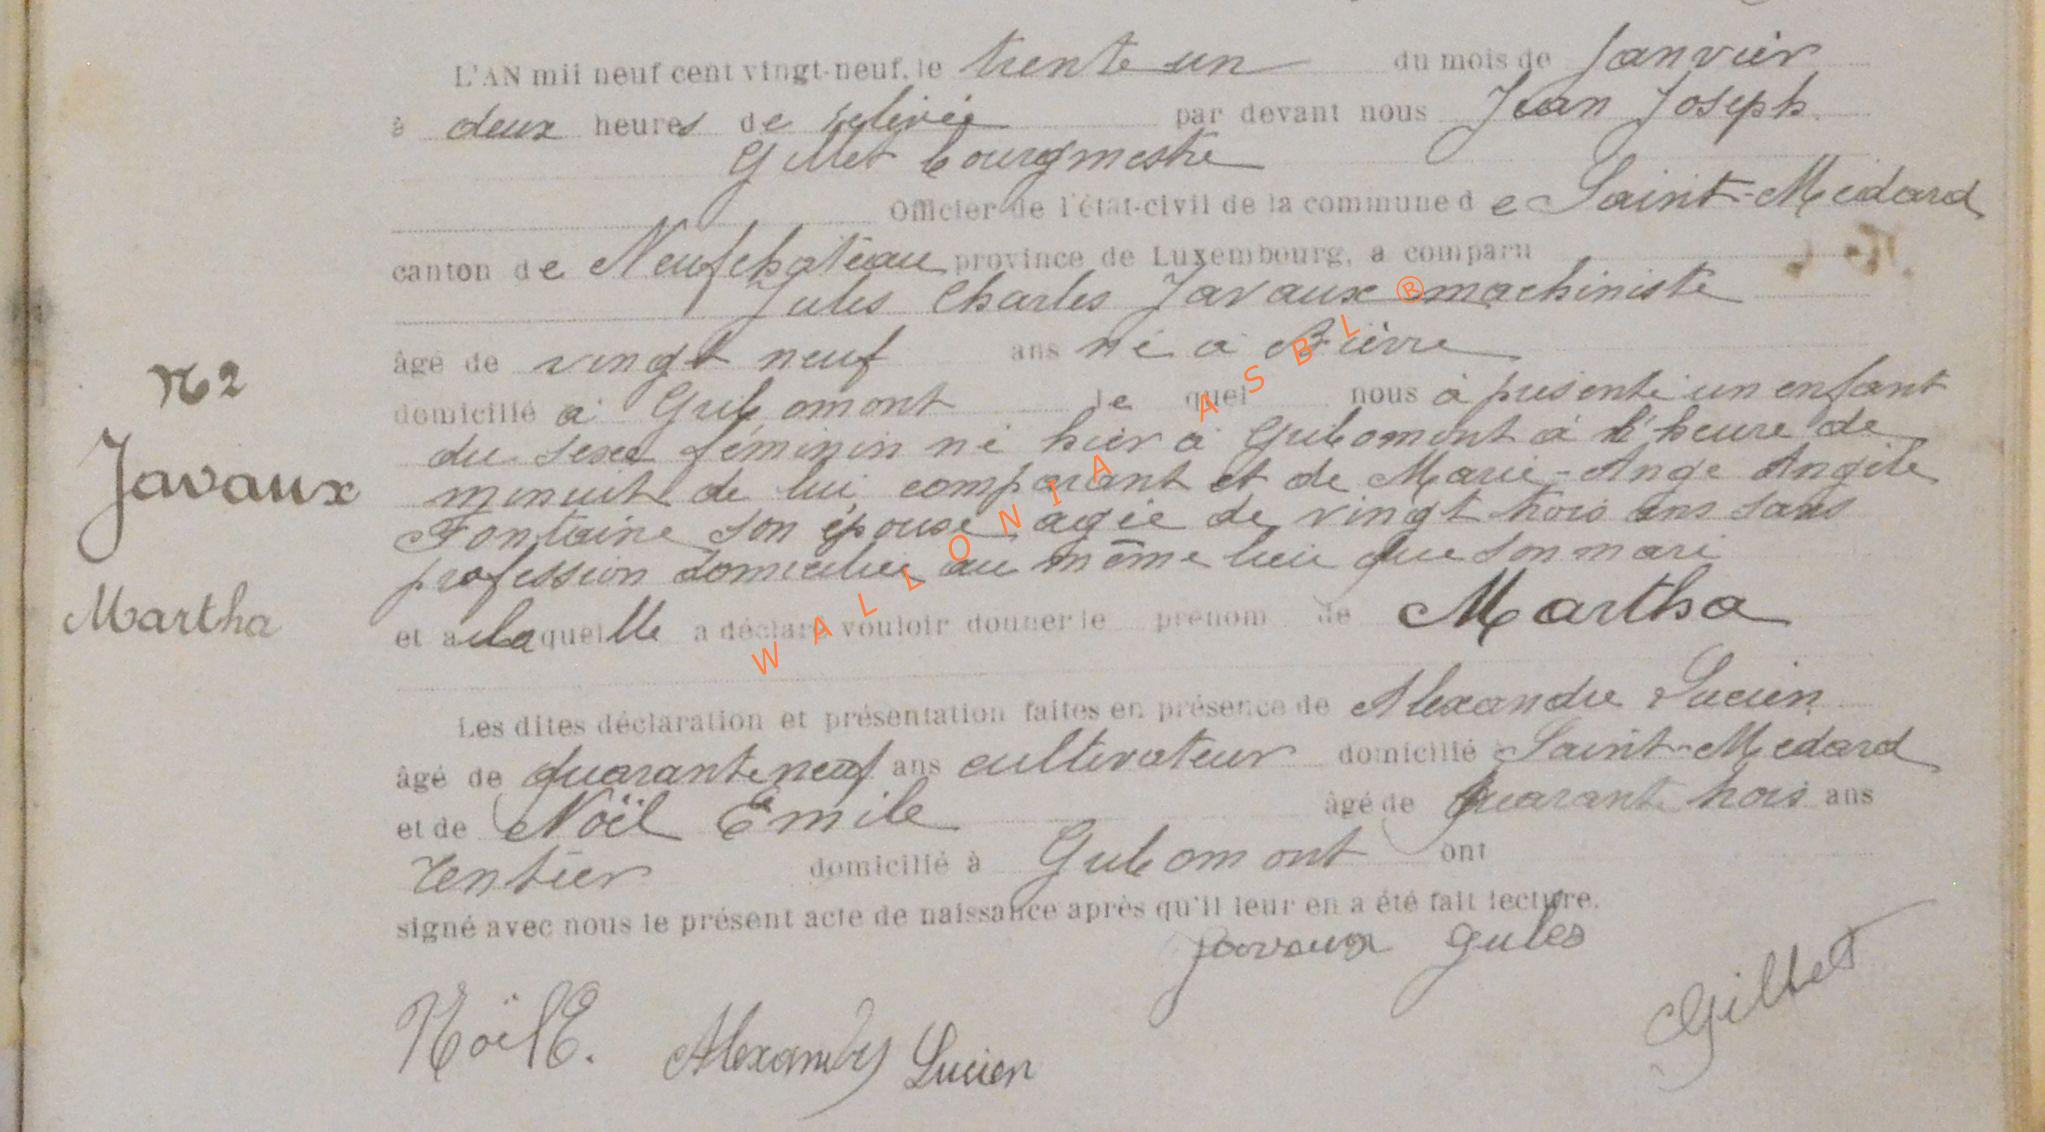 L'AN mil neuf cent vingt-neuf, le trente un du mois de Janvier
à deux heures de relevée par devant nous Jean Joseph
Gillet bourgmestre
Officier de l'état-civil de la commune de Saint-Médard
canton de Neufchateau province de Luxembourg, a comparu
Jules Charles Javaux machiniste
âgé de vingt neuf ans né à Bièvre
domicilié à Gribomont le quel nous à présenté un enfant
du sexe féminin né hier à Gribomont à l'heure de
minuit de lui comparant et de Marie-Ange Angèle
Fontaine son épouse agée de vingt trois ans sans
profession domiciliée au même lieu que son mari
et a laquelle a déclaré vouloir donner le prénom de Martha
Les dites déclaration et présentation faites en présence de Alexandre Lucien
âgé de quarante neuf ans cultivateur domicilié à Saint-Médard
et de Noël Emile âgé de quarante trois ans
rentier domicilié à Gribomont ont
signé avec nous le présent acte de naissance après qu'il leur en a été fait lecture.
Javaux Jules
Noël E. Alexandre Lucien Gillet
N2
Javaux
Martha
WALLONIA ASBL ®